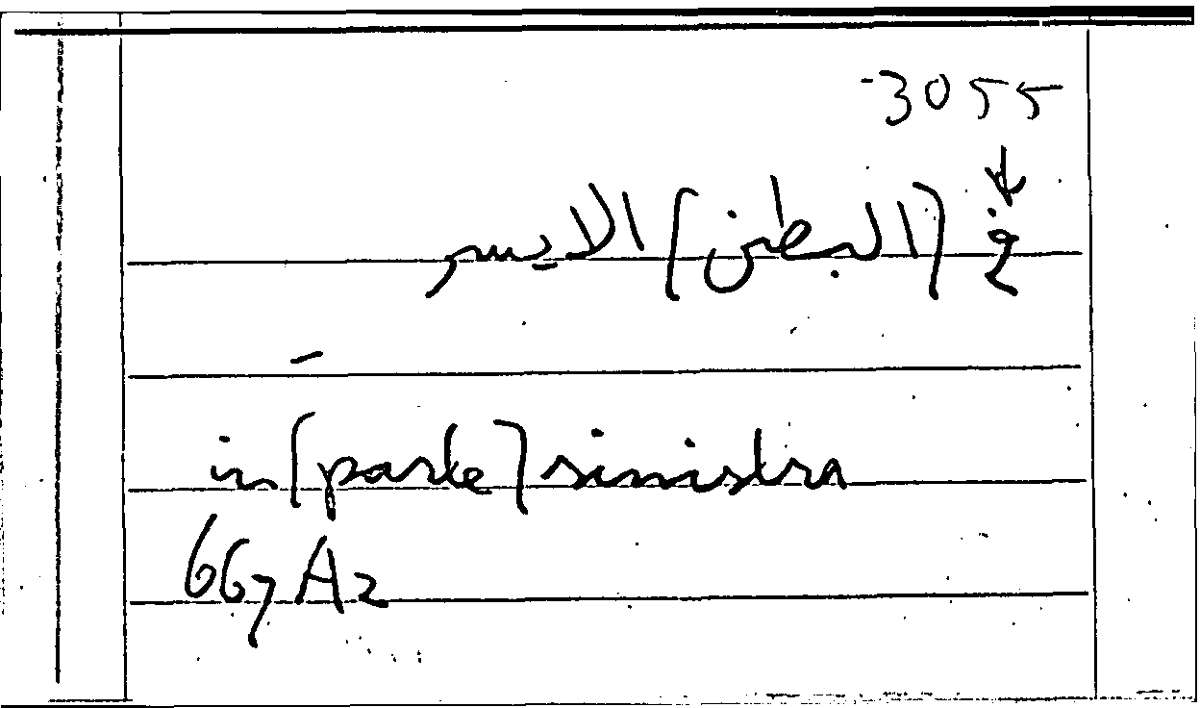 -3055
↓
في [البطن] الايسر
in [parte] sinistra
667 A2